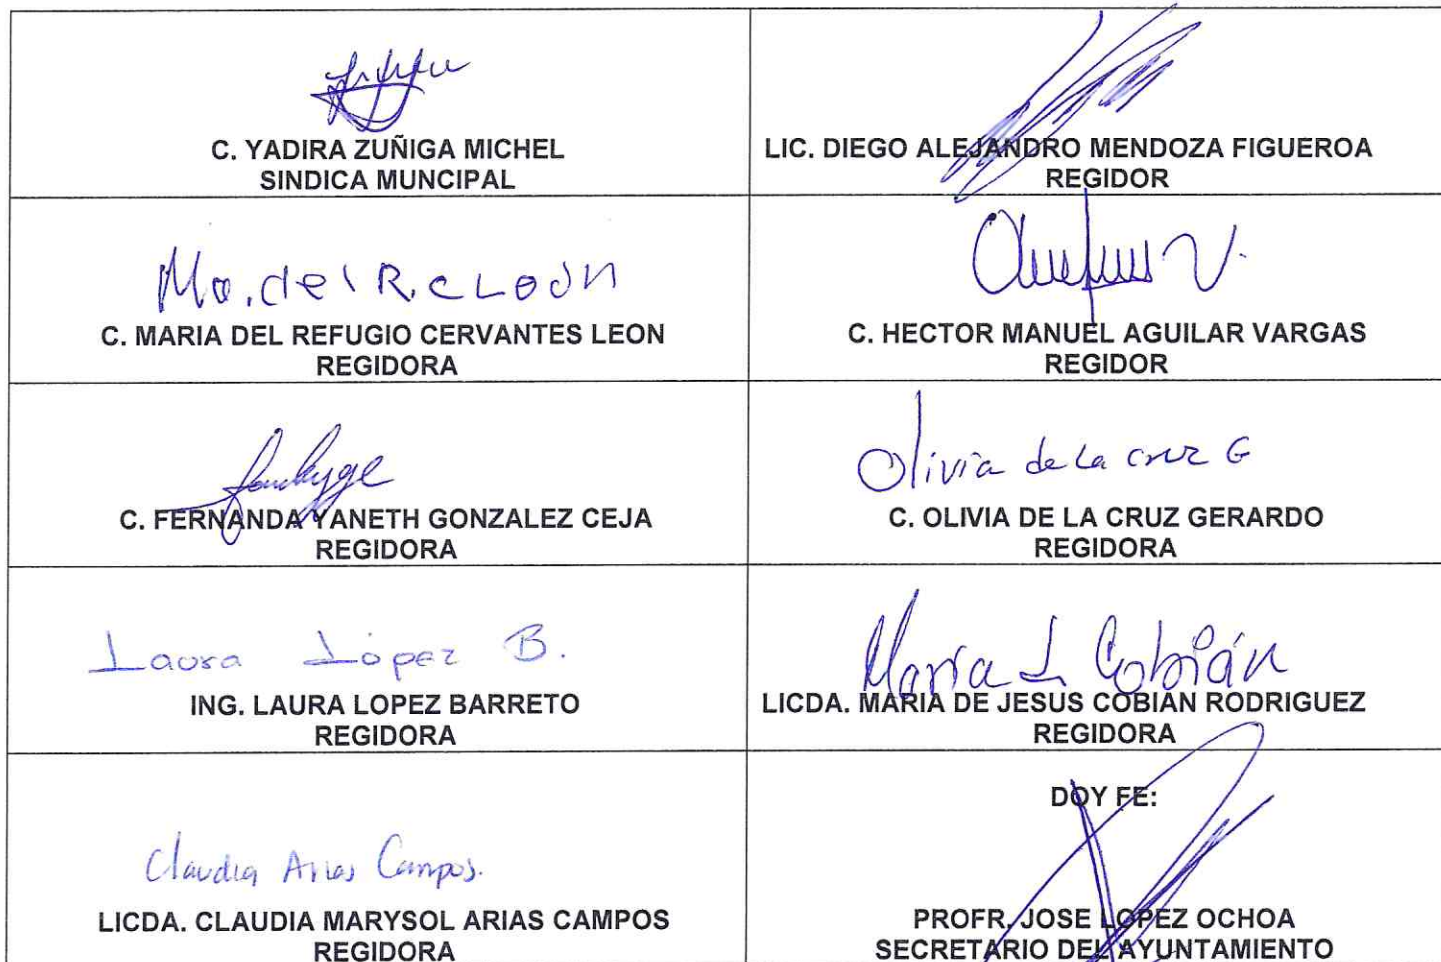 C. YADIRA ZUÑIGA MICHEL
SINDICA MUNCIPAL
LIC. DIEGO ALEJANDRO MENDOZA FIGUEROA
REGIDOR
Ma. del R. C León
C. MARIA DEL REFUGIO CERVANTES LEON
REGIDORA
V.
C. HECTOR MANUEL AGUILAR VARGAS
REGIDOR
C. FERNANDA YANETH GONZALEZ CEJA
REGIDORA
Olivia de la cruz G
C. OLIVIA DE LA CRUZ GERARDO
REGIDORA
Laura López B.
ING. LAURA LOPEZ BARRETO
REGIDORA
María J Cobián
LICDA. MARIA DE JESUS COBIAN RODRIGUEZ
REGIDORA
Claudia Arias Campos.
LICDA. CLAUDIA MARYSOL ARIAS CAMPOS
REGIDORA
DOY FE:
PROFR. JOSE LOPEZ OCHOA
SECRETARIO DEL AYUNTAMIENTO